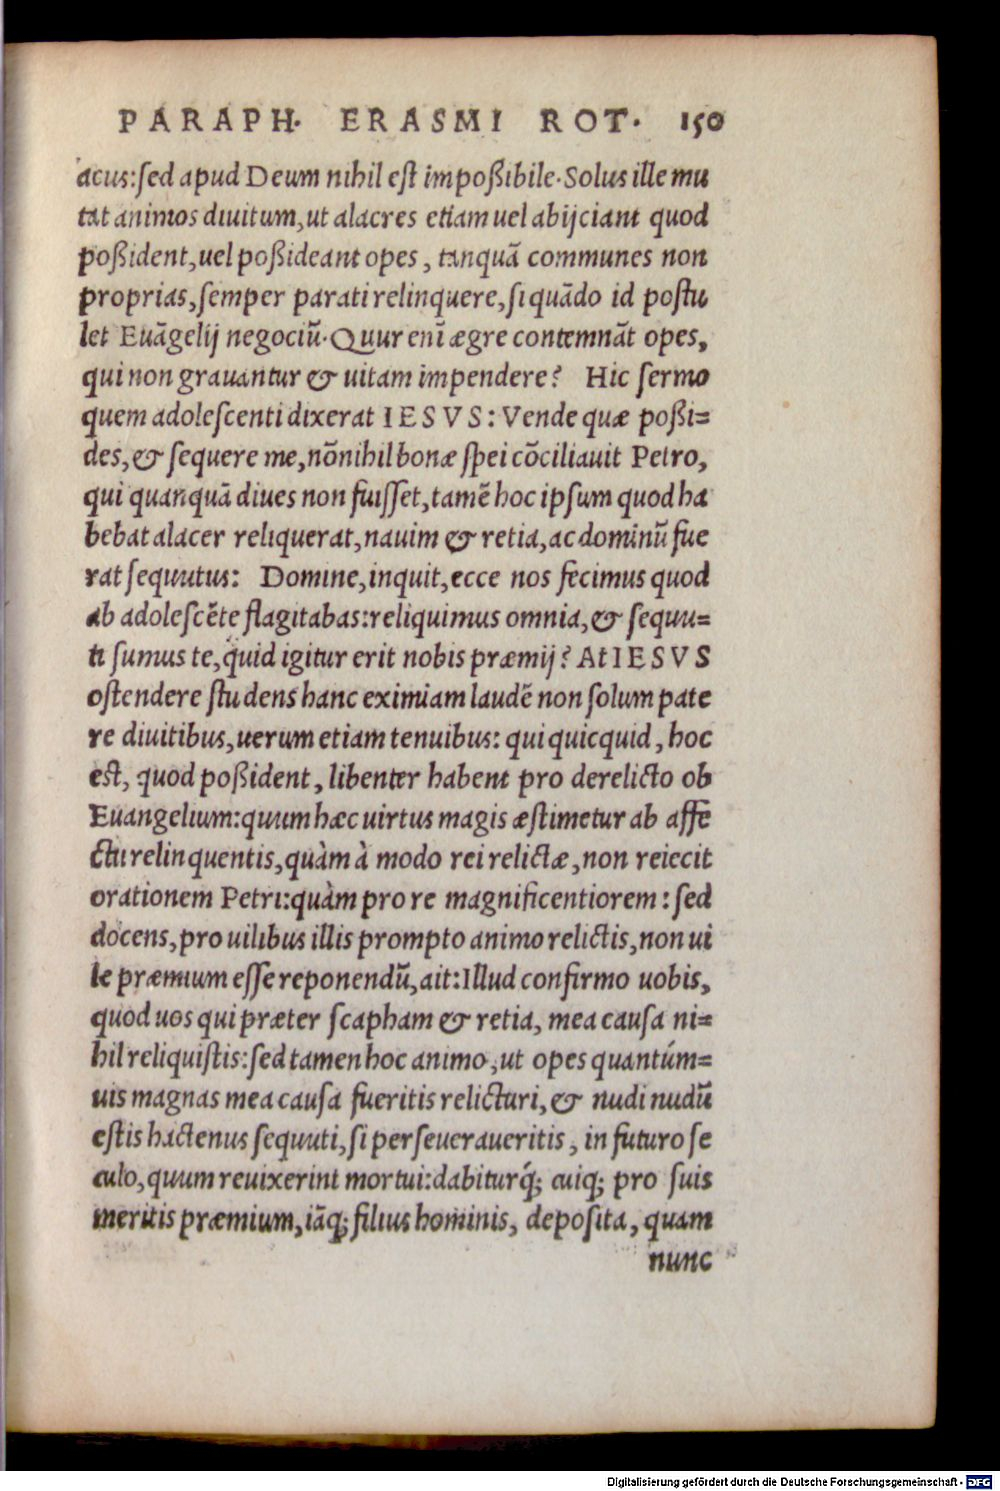 PARAPH. ERASMI ROT. 150
acus:sed apud Deum nihil est impoßibile. Solus ille mu
tat animos diuitum, ut alacres etiam uel abijciant quod
poßident, uel poßideant opes, tanquā communes non
proprias, semper parati relinquere, si quādo id postu
let Euāgelij negociū. Quur enī ægre contemnāt opes,
qui non grauantur & uitam impendere? Hic sermo
quem adolescenti dixerat IESVS: Vende quæ poßi=
des, & sequere me, nōnihil bonæ spei cōciliauit Petro,
qui quanquā diues non fuisset, tamē hoc ipsum quod ha
bebat alacer reliquerat, nauim & retia, ac dominū fue
rat sequutus: Domine, inquit, ecce nos fecimus quod
ab adolescēte flagitabas: reliquimus omnia, & sequu=
ti sumus te, quid igitur erit nobis præmij? At IESVS
ostendere studens hanc eximiam laudē non solum pate
re diuitibus, uerum etiam tenuibus: qui quicquid, hoc
est, quod poßident, libenter habent pro derelicto ob
Euangelium: quum hæc uirtus magis æstimetur ab affe
ctu relinquentis, quàm à modo rei relictæ, non reiecit
orationem Petri: quàm pro re magnificentiorem: sed
docens, pro uilibus illis prompto animo relictis, non ui
le præmium esse reponendū, ait: Illud confirmo uobis,
quod uos qui præter scapham & retia, mea causa ni=
hil reliquistis: sed tamen hoc animo, ut opes quantúm=
uis magnas mea causa fueritis relicturi, & nudi nudū
estis hactenus sequuti, si perseueraueritis, in futuro se
culo, quum reuixerint mortui: dabiturq́; cuiq; pro suis
meritis præmium, iāq; filius hominis, deposita, quam
nunc
Digitalisierung gefördert durch die Deutsche Forschungsgemeinschaft - DFG